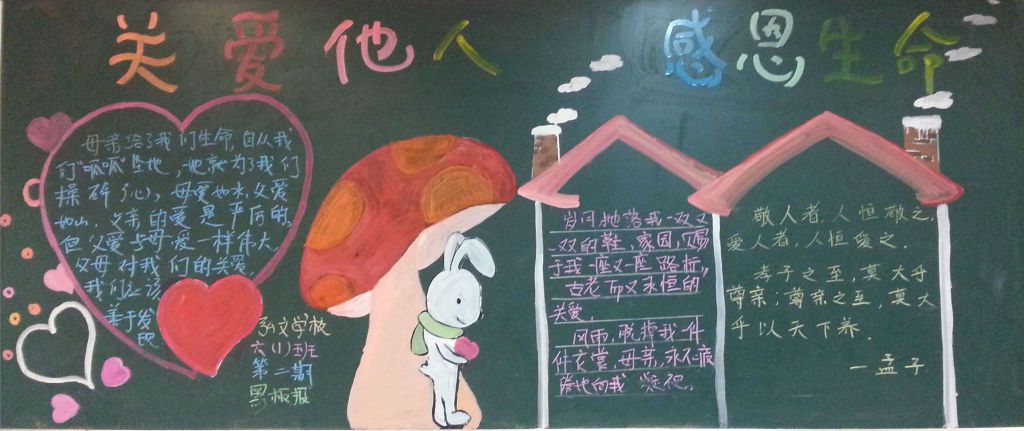 关爱他人
感恩生命
母亲给了我们生命,自从我
们"呱呱"坠地,她就为了我们
操碎了心,母爱如水,父爱
如山,父亲的爱是严厉的,
但父爱与母爱一样伟大,
父母对我们的关爱
我们应该
善于发
现
孙文学校
六(1)班
第二期
黑板报
岁月抛落我一双又
一双的鞋,家园,赐
于我一座又一座路标,
古老而又永恒的
关爱。
风雨,脱掉我一件
件衣裳,母亲,永不疲
地向我
敬人者,人恒敬之,
爱人者,人恒爱之.
孝子之至,莫大乎
尊亲;尊亲之至,莫大
乎以天下养.
一孟子